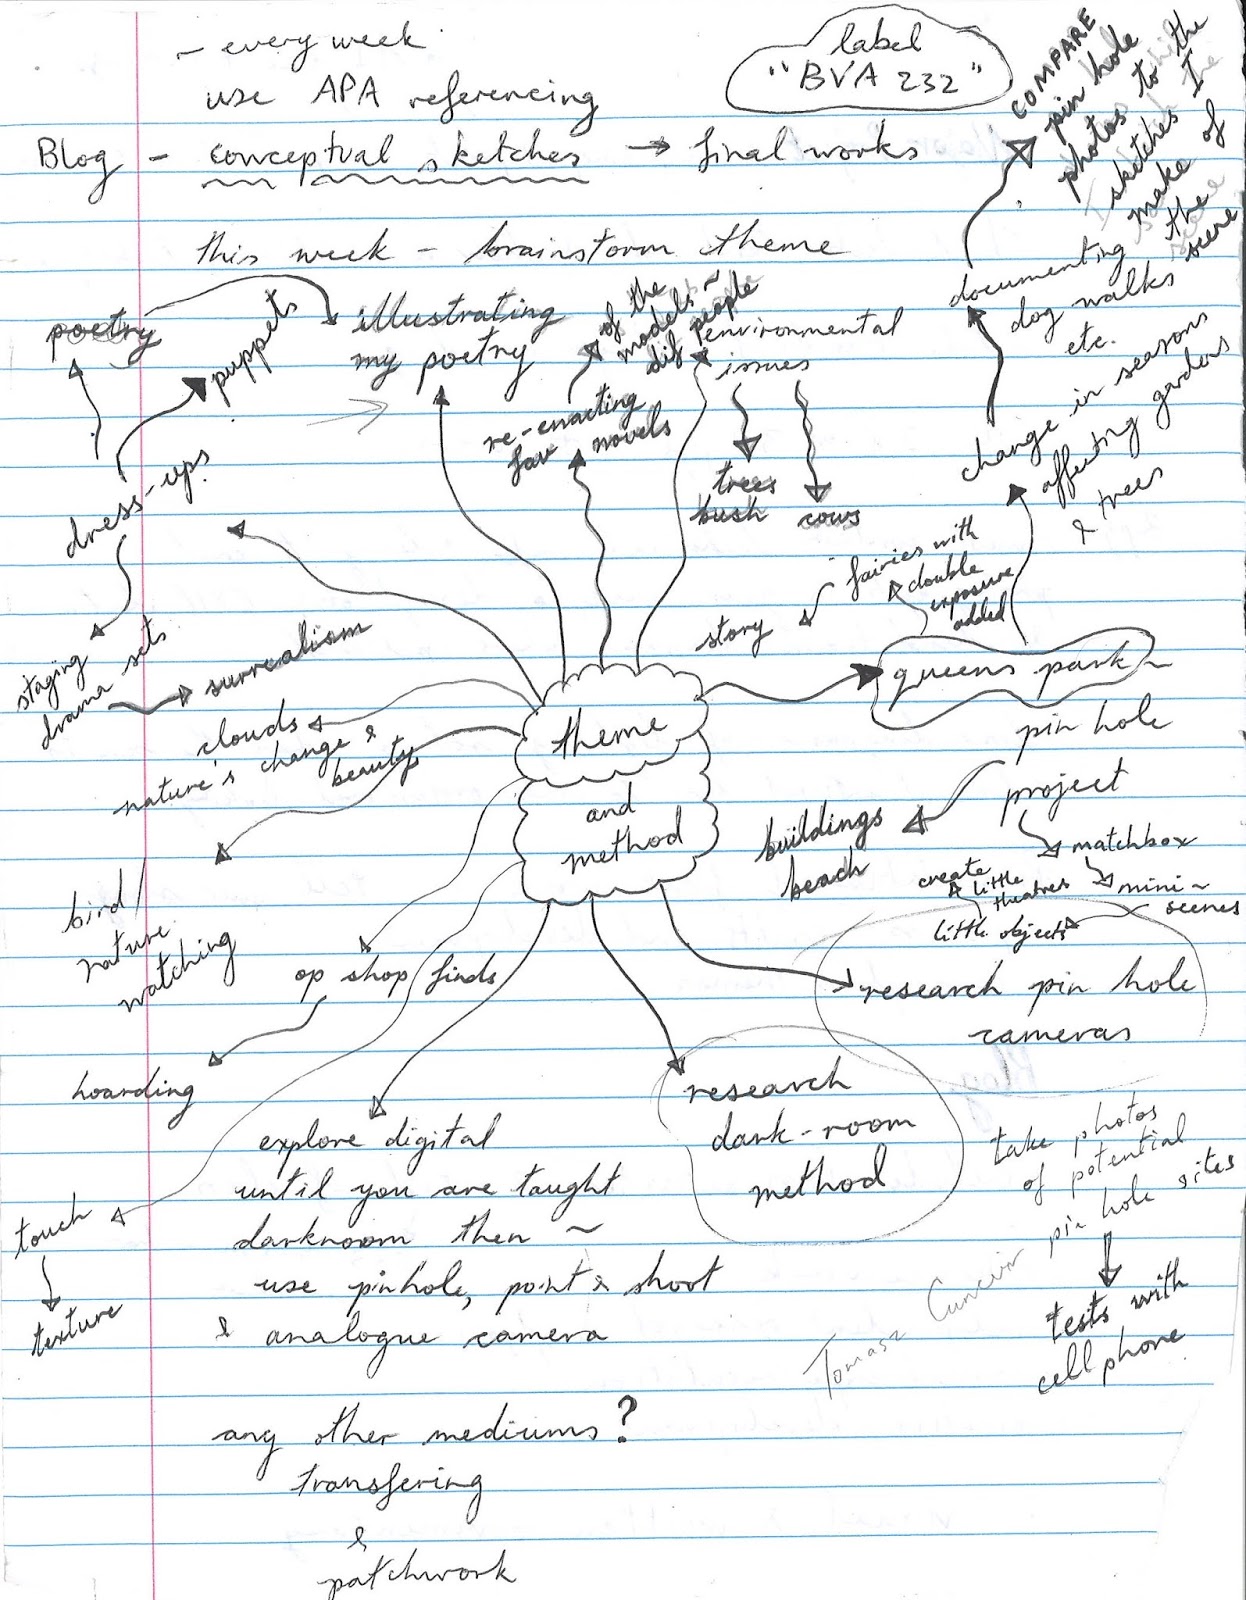 - every week
use APA referencing
label
"BVA 232"
Blog - conceptual sketches → final works
COMPARE
pin hole
photos to the
sketches I
make of
the
scene
this week - brainstorm theme
poetry
puppets
illustrating
my poetry
of the
models ~
dif people
re-enacting
fav novels
environmental
issues
trees
bush
cows
documenting
dog walks
etc.
change in seasons
affecting gardens
& trees
dress-ups
staging
drama sets
surrealism
clouds
nature's change &
beauty
story
fairies with
double
exposure
added
queens park ~
pin hole
project
theme
and
method
buildings
beach
matchbox
mini ~
scenes
create
little
theatres
little objects
bird/
nature
watching
op shop finds
hoarding
research pin hole
cameras
research
dark-room
method
explore digital
until you are taught
darkroom then ~
use pinhole, point & shoot
& analogue camera
touch
texture
take photos
of potential
pin hole sites
tests with
cell phone
Tomasz
any other mediums?
transfering
&
patchwork